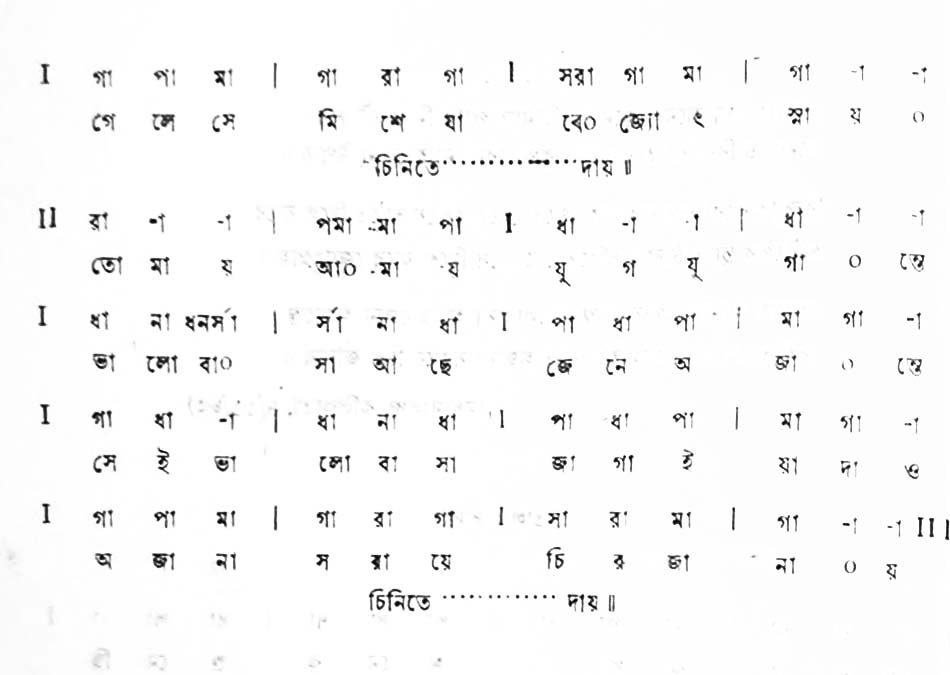 I গা পা মা | গা রা গা I সরা গা মা | গা -া -া
গে লে সে মি শে যা বে০ জ্যো ৎ স্না য় ০
চিনিতে············দায় ॥
II রা -া -া | পমা মা পা I ধা -া -া | ধা -া -া
তো মা য় আ০ মা য় যু গ যু গা ০ ন্তে
I ধা না ধনর্সা | র্সা না ধা I পা ধা পা | মা গা -া
ভা লো বা০ সা আ ছে জে নে অ জা ০ ন্তে
I গা ধা -া | ধা না ধা I পা ধা পা | মা গা -া
সে ই ভা লো বা সা জা গা ই য়া দা ও
I গা পা মা | গা রা গা I সা রা মা | গা -া -া II I
অ জা না স রা য়ে চি র জা না ০ য়
চিনিতে············দায় ॥